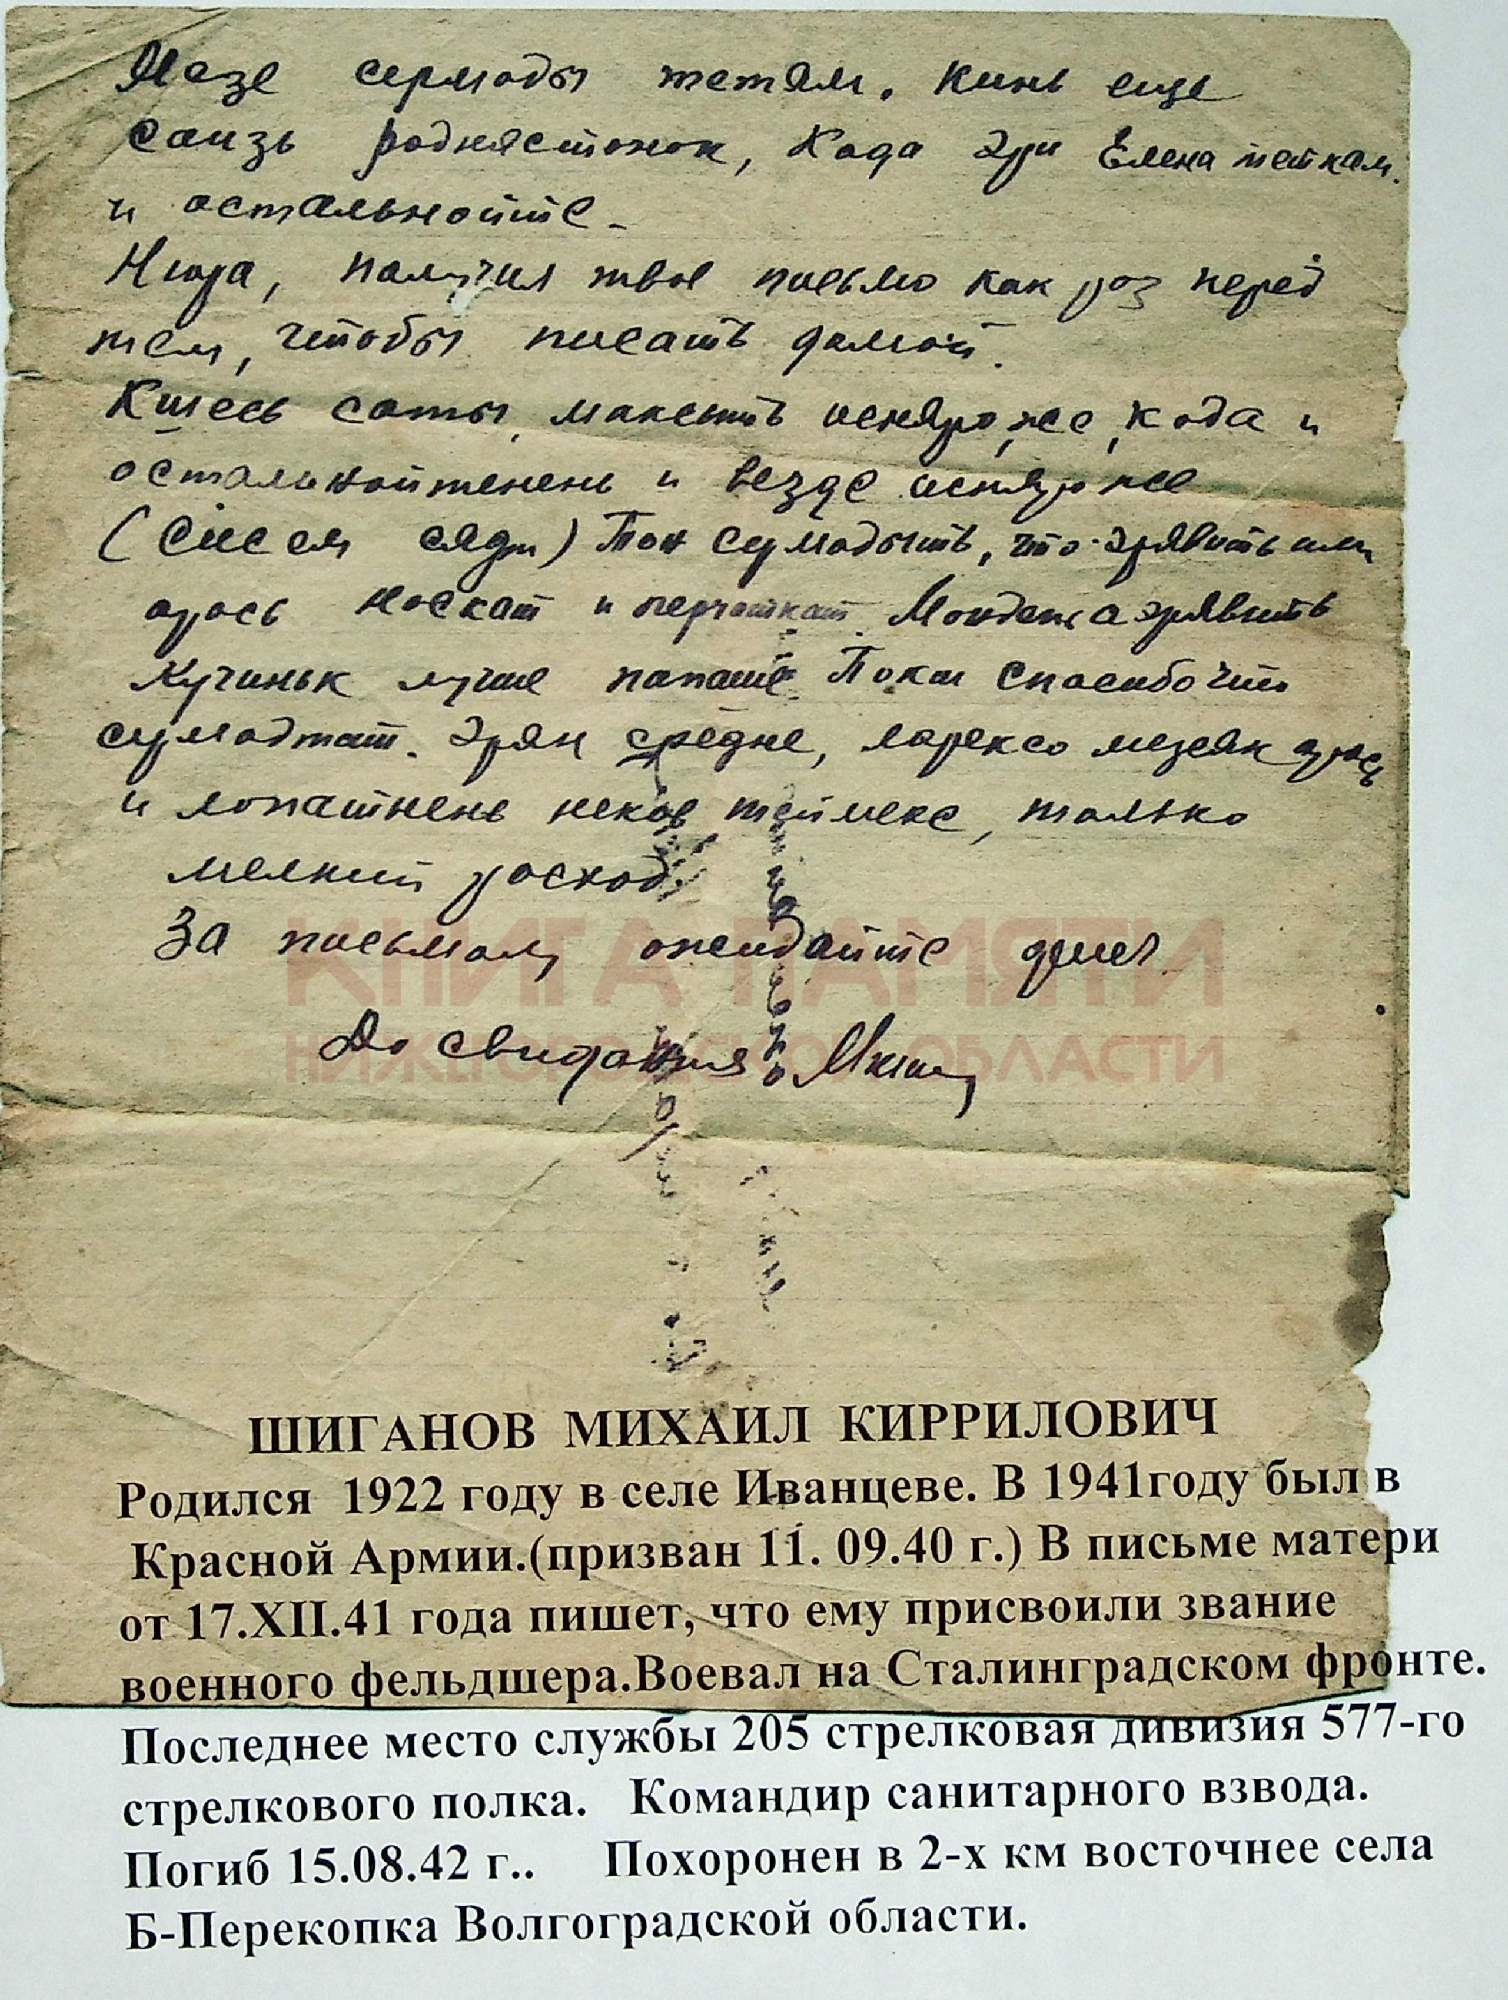 Мезе сермады тетям. Кинь еще
саизь роднястонок, Кода эри Елена теткам.
и остальнойтне.
Нюра, получил твое письмо как раз перед
тем, чтобы писать домой.
саты, кода и
остальнойтненень и везде
(сяды) Тон сермадыть, что эрявить или
арась носкат и перчаткат. эрявить
лучше папаше. Покш спасибо что
сермадтат. Эрян средне,
и лопатнень теймекс, только
мелкий расход.
За письмом ожидайте денег
До свидания Миша
КНИГА ПАМЯТИ
НИЖЕГОРОДСКОЙ ОБЛАСТИ
ШИГАНОВ МИХАИЛ КИРРИЛОВИЧ
Родился 1922 году в селе Иванцеве. В 1941году был в
Красной Армии.(призван 11. 09.40 г.) В письме матери
от 17.XII.41 года пишет, что ему присвоили звание
военного фельдшера.Воевал на Сталинградском фронте.
Последнее место службы 205 стрелковая дивизия 577-го
стрелкового полка. Командир санитарного взвода.
Погиб 15.08.42 г.. Похоронен в 2-х км восточнее села
Б-Перекопка Волгоградской области.